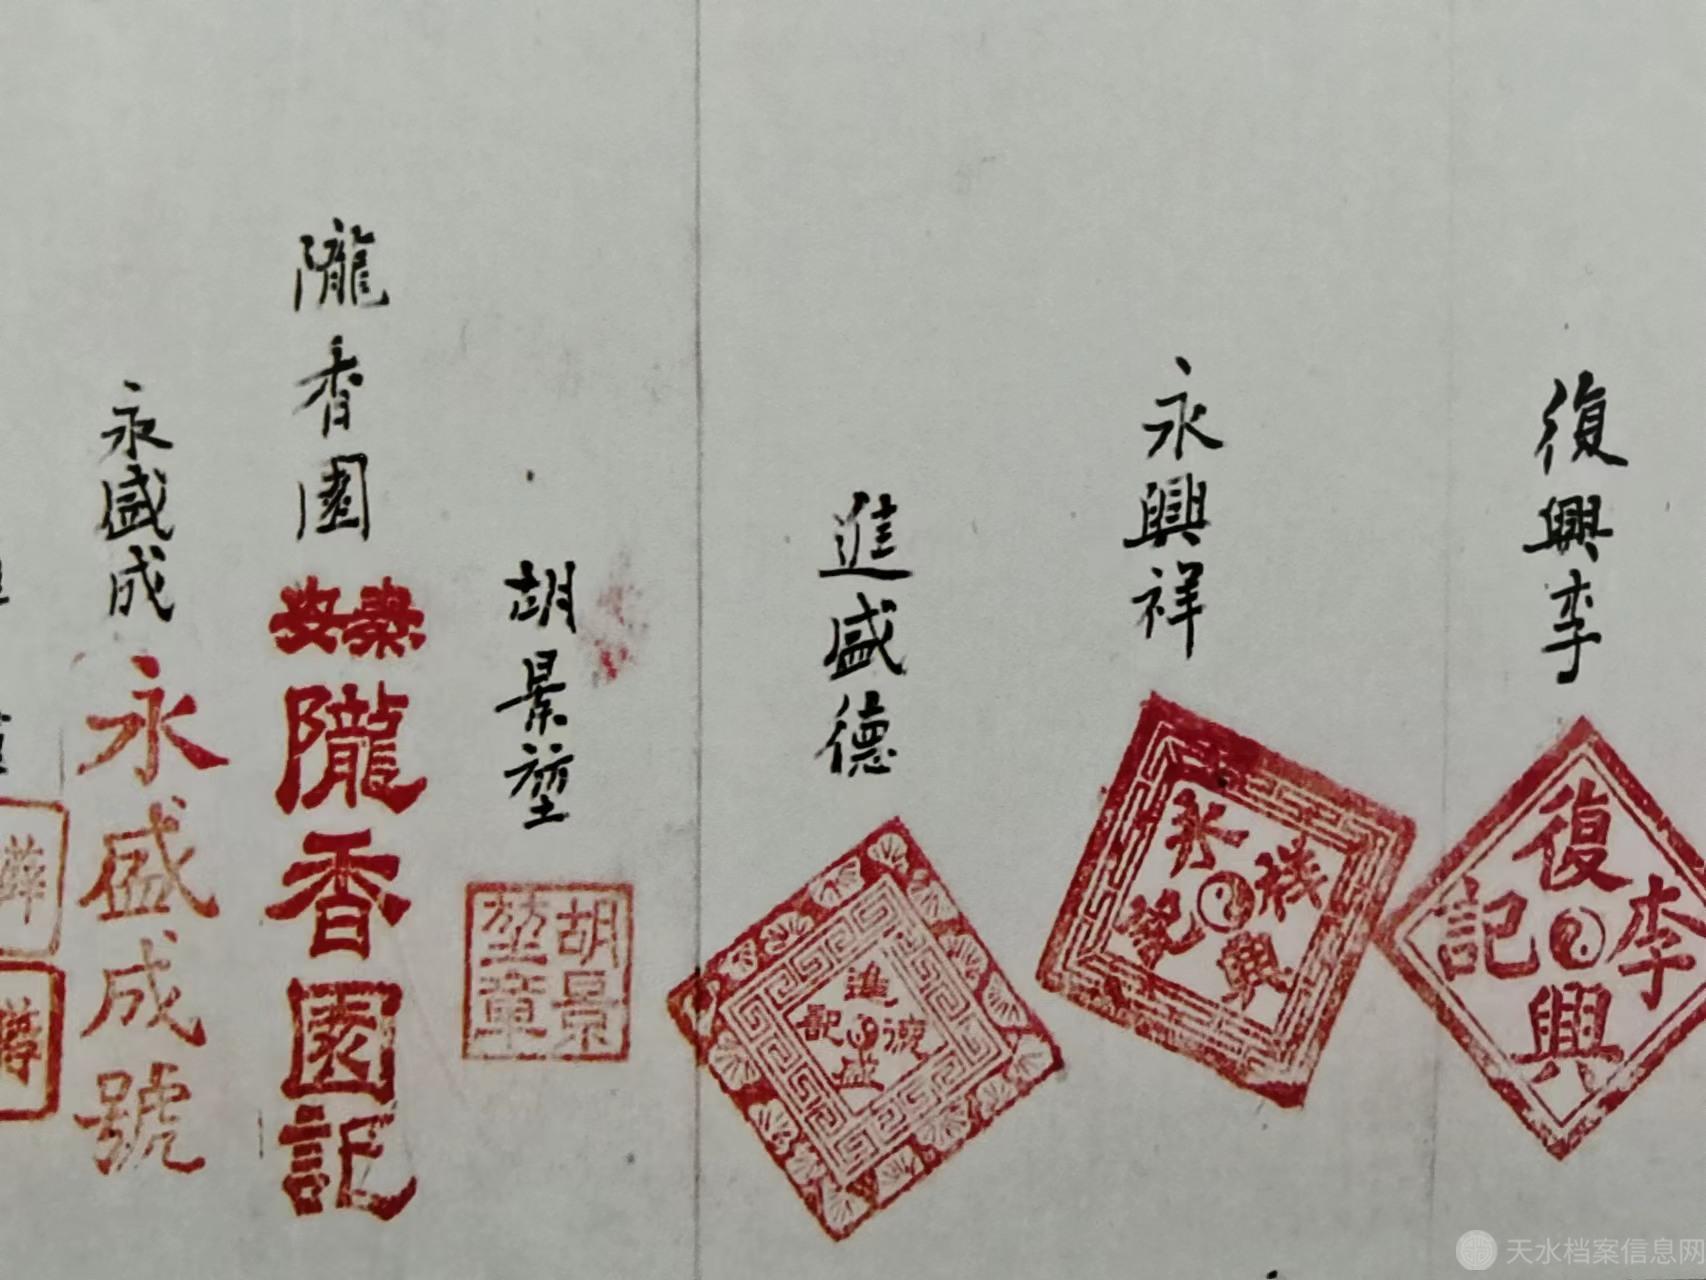 復興李
復李興記
永興祥
永祥興記
進盛德
進德盛記
胡景堃
胡景堃章
隴香園
秦安
隴香園記
永盛成
永盛成號
薛
天水档案信息网